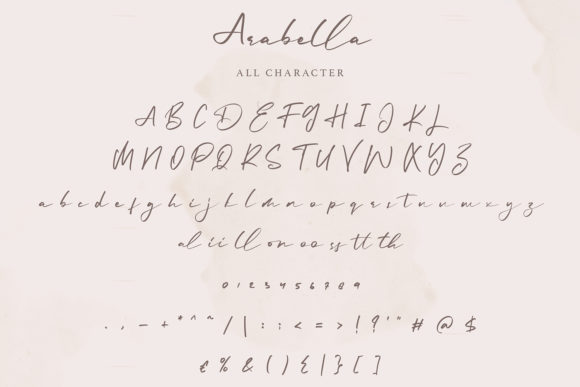 Arabella
ALL CHARACTER
A B C D E F G H I J K L
M N O P Q R S T U V W X Y Z
a b c d e f g h i j k l m n o p q r s t u v w x y z
al ii ll on oo ss tt th
0 1 2 3 4 5 6 7 8 9
. , – + * ^ ~ / | : ; < = > ! ? ' " # @ $
€ % & ( ) { | } [ ]